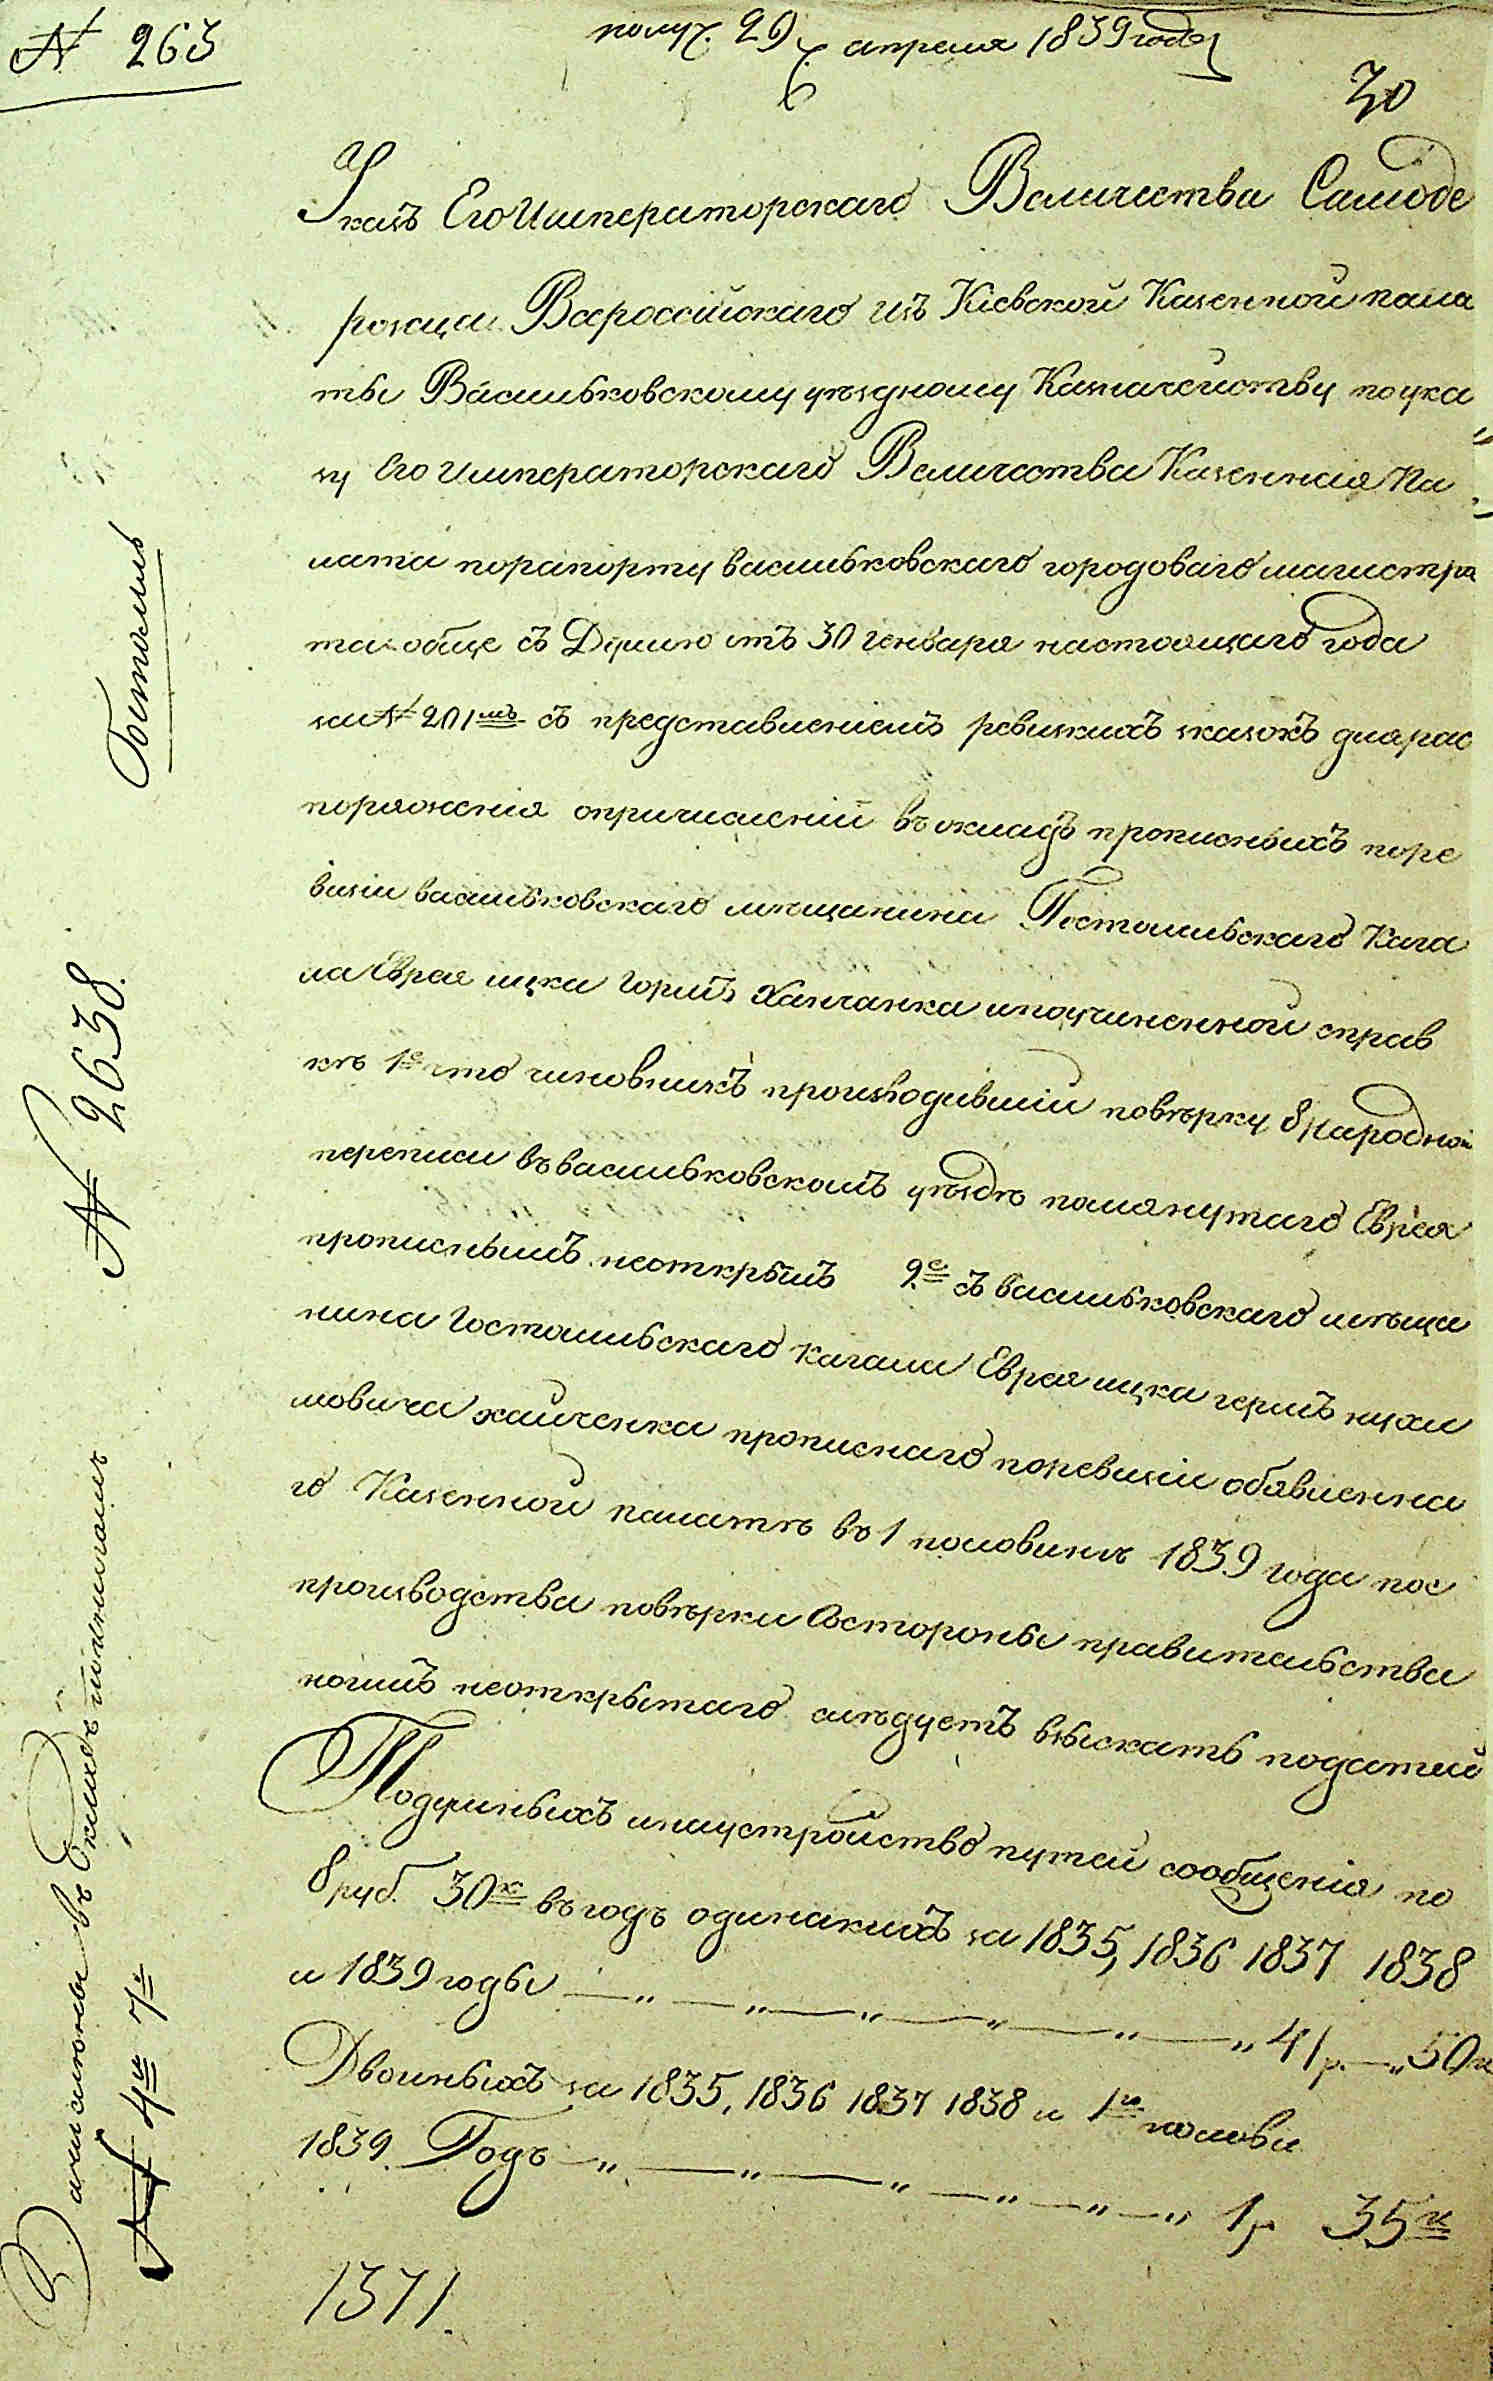 № 263
получ. 29 апреля 1839 года
30
Указъ Его Императорскаго Величества Самоде
ржца Всероссійскаго изъ Кіевской Казенной пала
ты Васильковскому уѣздному Казначейству по ука
зу Его Императорскаго Величества Казенная Па
лата по рапорту васильковскаго городоваго магистра
та обще съ Думою отъ 30 генваря настоящаго года
за № 201мъ съ представленіемъ ревизкихъ сказокъ для рас
поряженія о причисленіи въ окладъ прописныхъ по ре
визіи васильковскаго мѣщанина Гостомльскаго Кага
ла Еврея ицка Горшъ Хаичанка и по учиненной справ
кѣ 1е что чиновникъ производившій повѣрку 8 народной
переписи въ васильковскомъ уѣздѣ помянутаго Еврея
прописнымъ неоткрылъ 2е съ васильковскаго мѣща
нина Гостомльскаго кагала Еврея ицка гершъ нухи
мовича хаиченка прописнаго по ревизіи объявленна
го Казенной палатѣ въ 1 половинѣ 1839 года пос
производства повѣрки со стороны правительства
ногимъ неоткрытаго слѣдуетъ взыскать податей
Подушныхъ и на устройство путей сообщенія по
8 руб. 30к въ годъ одинакихъ за 1835, 1836 1837 1838
и 1839 годы — „ — „ — „ — „ — „ — „ 41 р. — „ 50 к
Двоиныхъ за 1835, 1836 1837 1838 и 1й полови
1839. Годъ — „ — „ — „ — „ — „ — „ 1 р 35к
1371.
Гостомль
№ 2638.
Зачислены въ Окладъ
№ 4й 7й